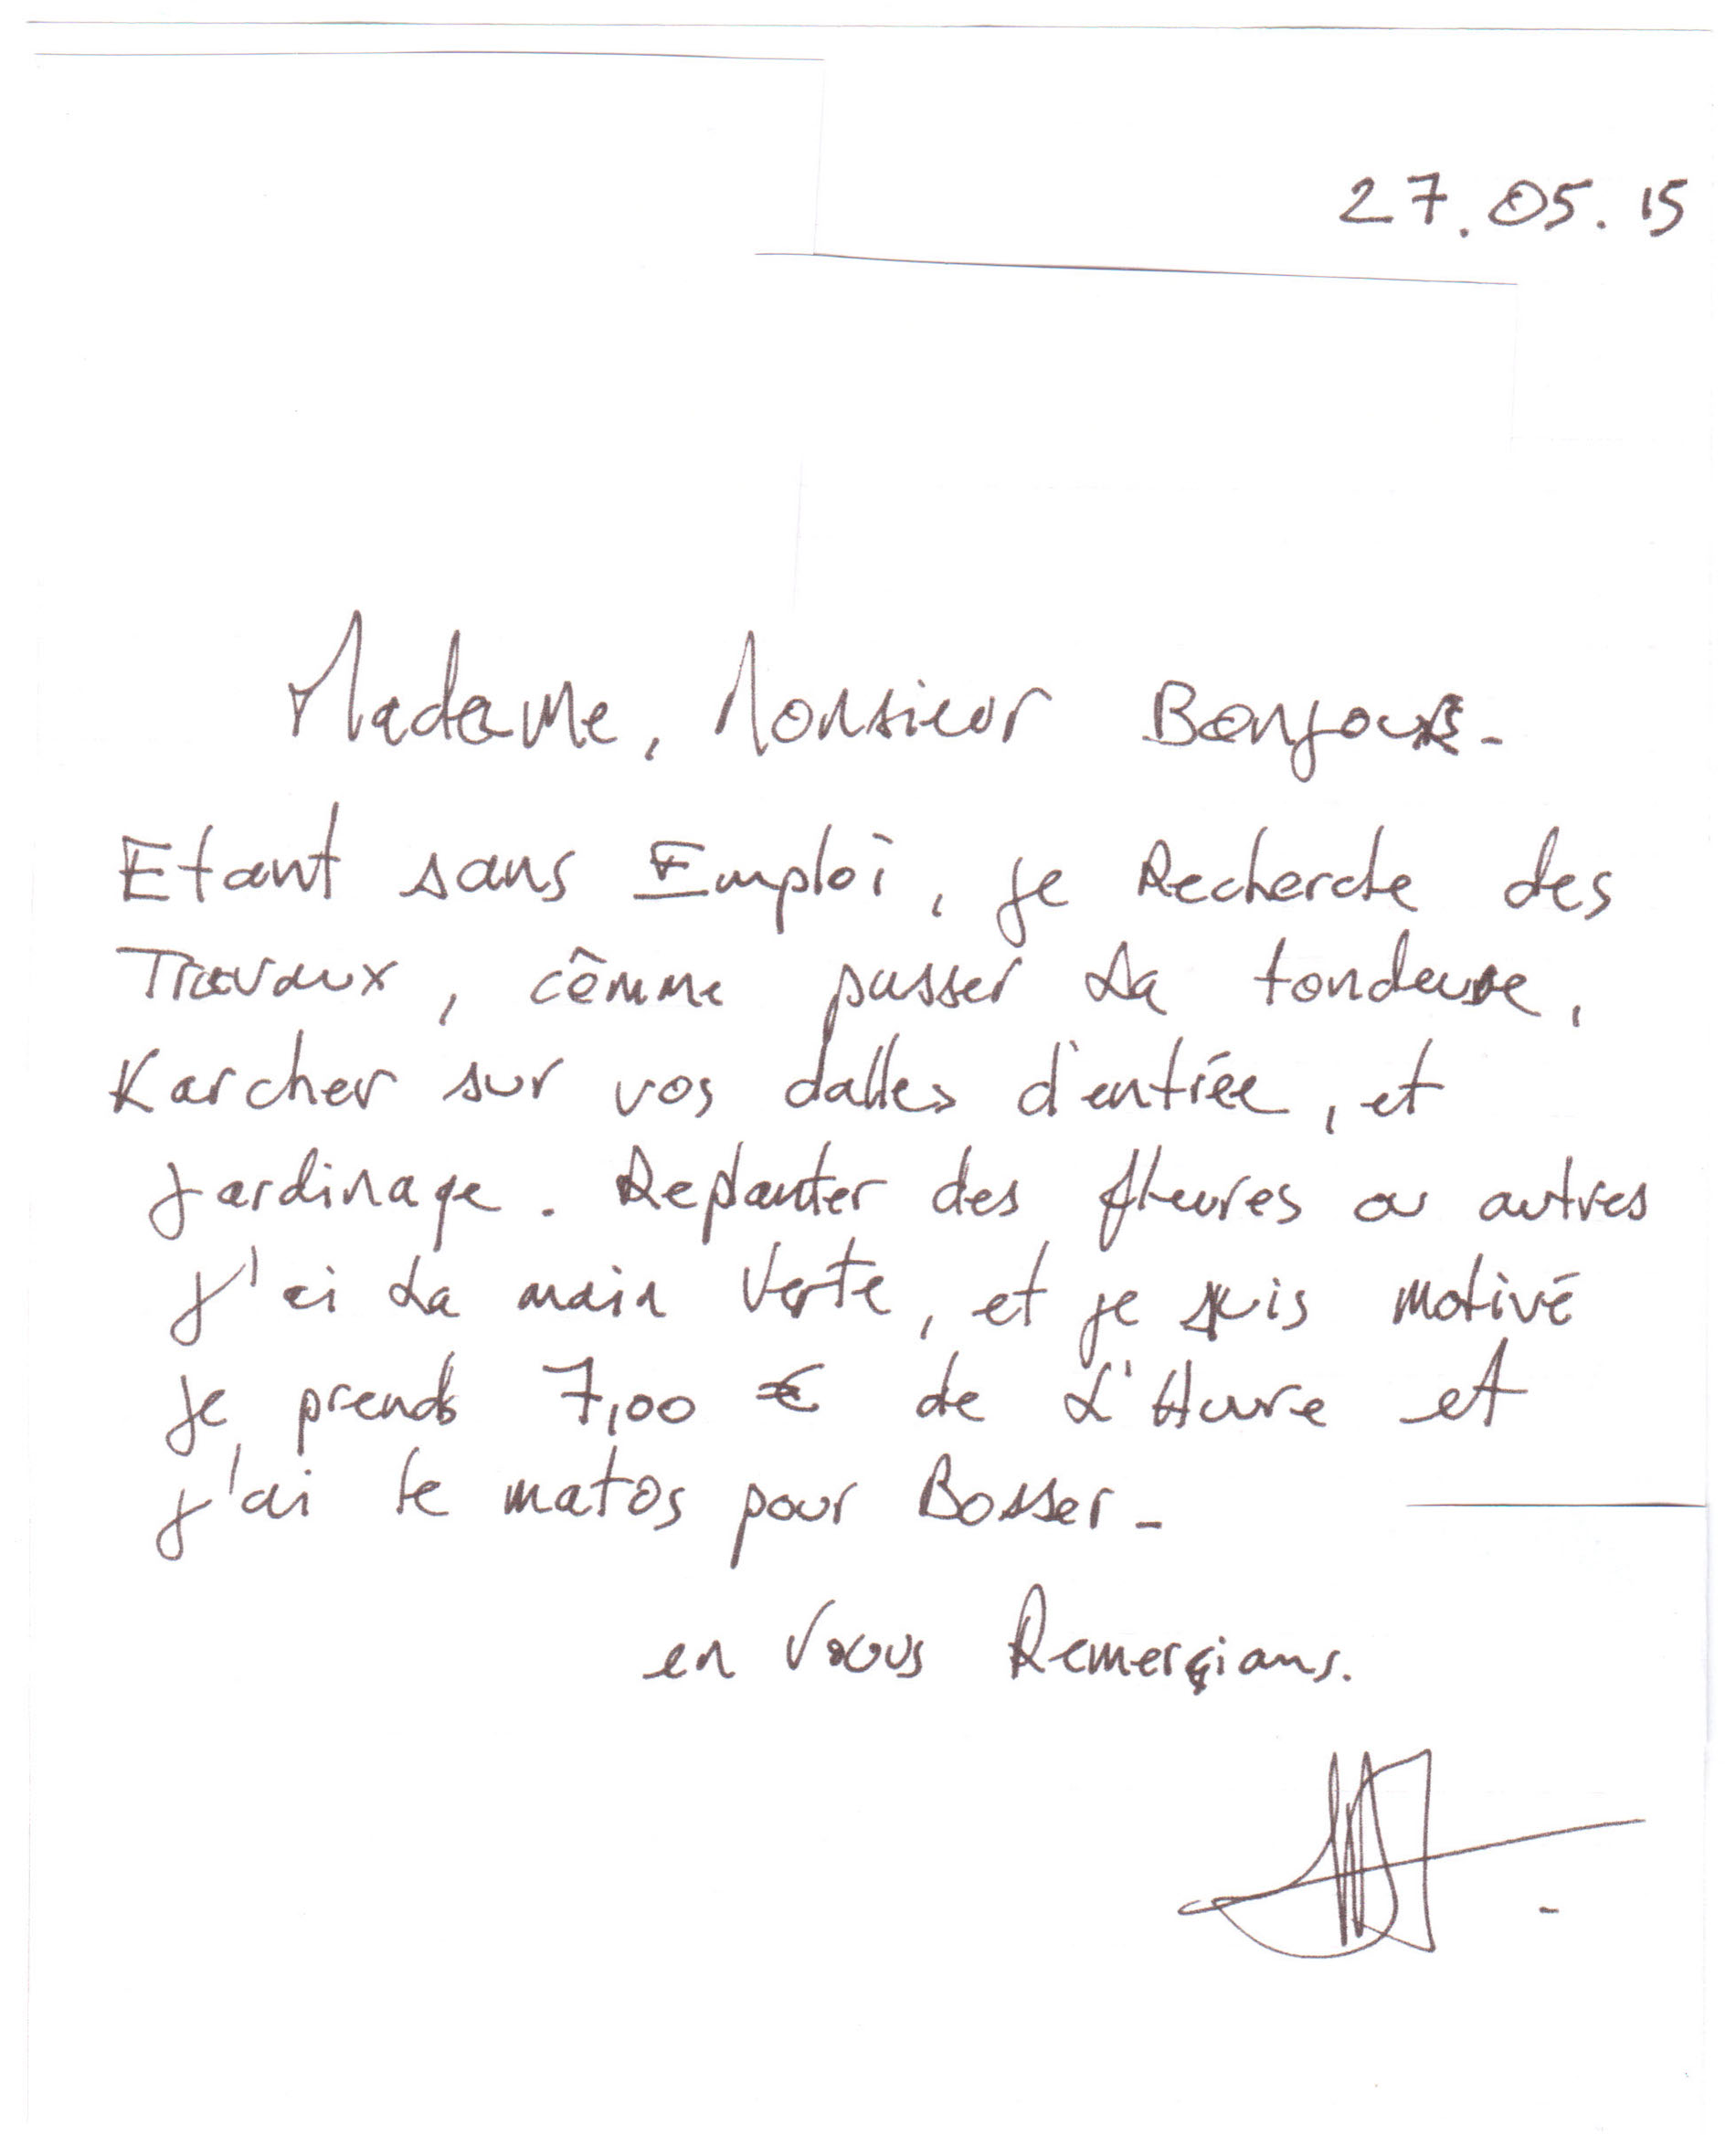 27.05.15
Madame, Monsieur Bonjour-
Etant sans Emploi, je Recherche des
Travaux, cômme passer La tondeuse,
Karcher sur vos dalles d'entrée, et
jardinage. Replanter des fleures ou autres
j'ai La main Verte, et je suis motivé
je prends 7,00 € de L'Heure et
j'ai le matos pour Bosser-
en Vous Remerçians.